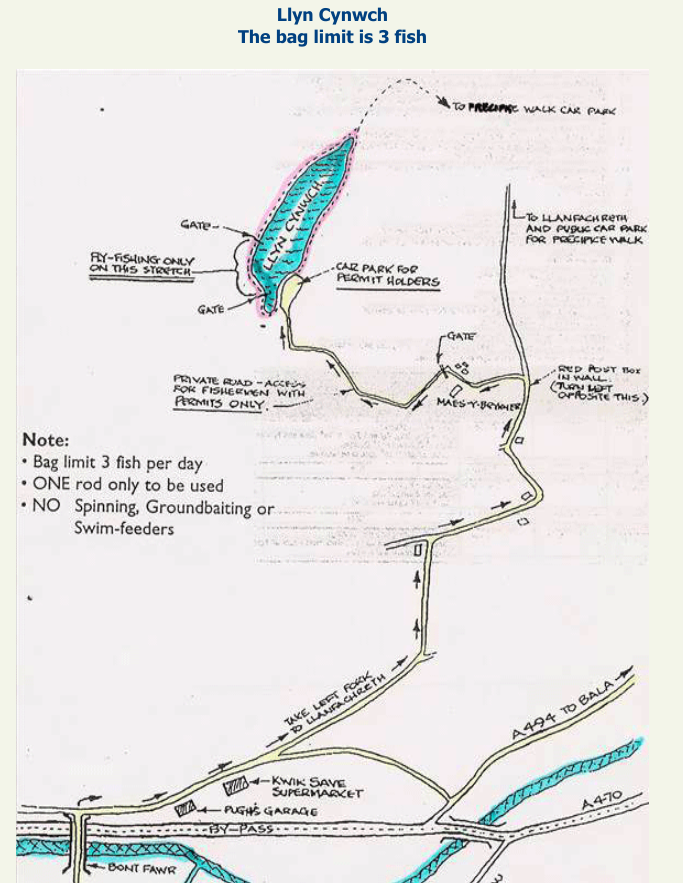 Llyn Cynwch
The bag limit is 3 fish
TO PRECIPICE WALK CAR PARK
LLYN CYNWCH
GATE
TO LLANFACHRETH
AND PUBLIC CAR PARK
FOR PRECIPICE WALK
FLY-FISHING ONLY
ON THIS STRETCH
CAR PARK FOR
PERMIT HOLDERS
GATE
GATE
RED POST BOX
IN WALL.
(TURN LEFT
OPPOSITE THIS.)
PRIVATE ROAD - ACCESS
FOR FISHERMEN WITH
PERMITS ONLY.
Note:
• Bag limit 3 fish per day
• ONE rod only to be used
• NO Spinning, Groundbaiting or
Swim-feeders
TAKE LEFT FORK
TO LLANFACHRETH
A494 TO BALA
KWIK SAVE
SUPERMARKET
PUGH'S GARAGE
A470
BY-PASS
BONT FAWR